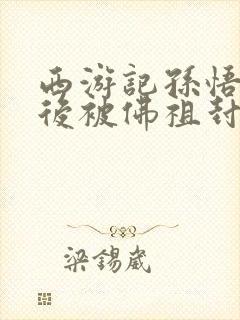 西游記孫悟
後被佛祖封
梁錫崴